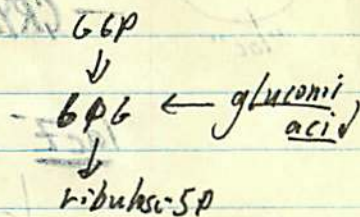 G6P
↓
6PG ← gluconic
acid
↓
ribulose-5P